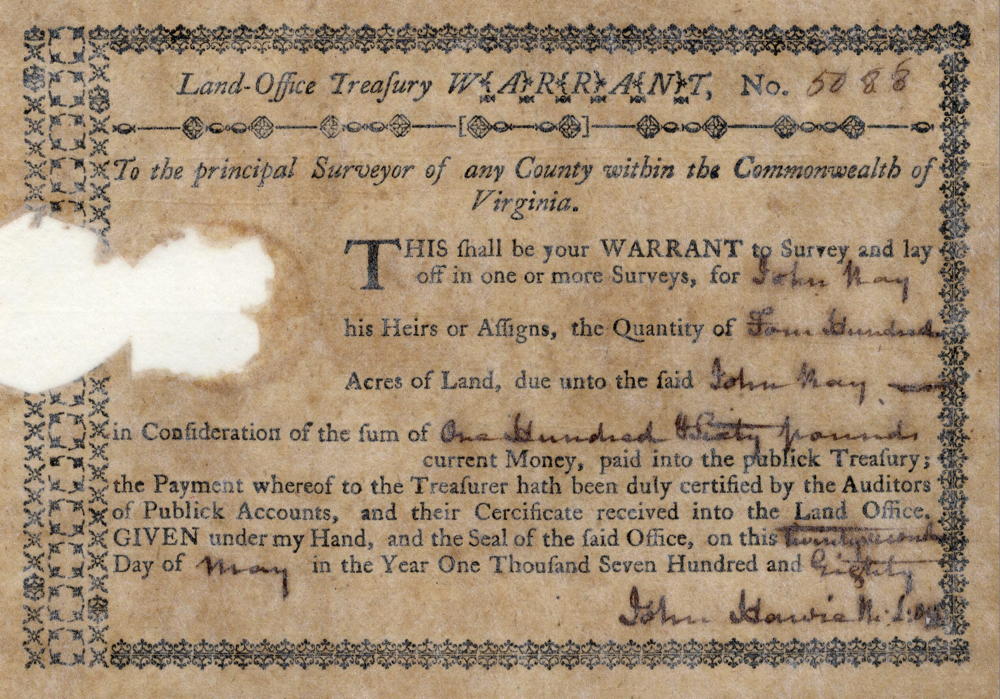 Land-Office Treaſury WARRANT, No. 5088
To the principal Surveyor of any County within the Commonwealth of
Virginia.
THIS ſhall be your WARRANT to Survey and lay
off in one or more Surveys, for John May
his Heirs or Aſſigns, the Quantity of Four Hundred
Acres of Land, due unto the ſaid John May
in Conſideration of the ſum of One Hundred & Sixty pounds
current Money, paid into the publick Treaſury;
the Payment whereof to the Treaſurer hath been duly certified by the Auditors
of Publick Accounts, and their Cercificate received into the Land Office.
GIVEN under my Hand, and the Seal of the ſaid Office, on this twenty second
Day of May in the Year One Thouſand Seven Hundred and Eighty
John